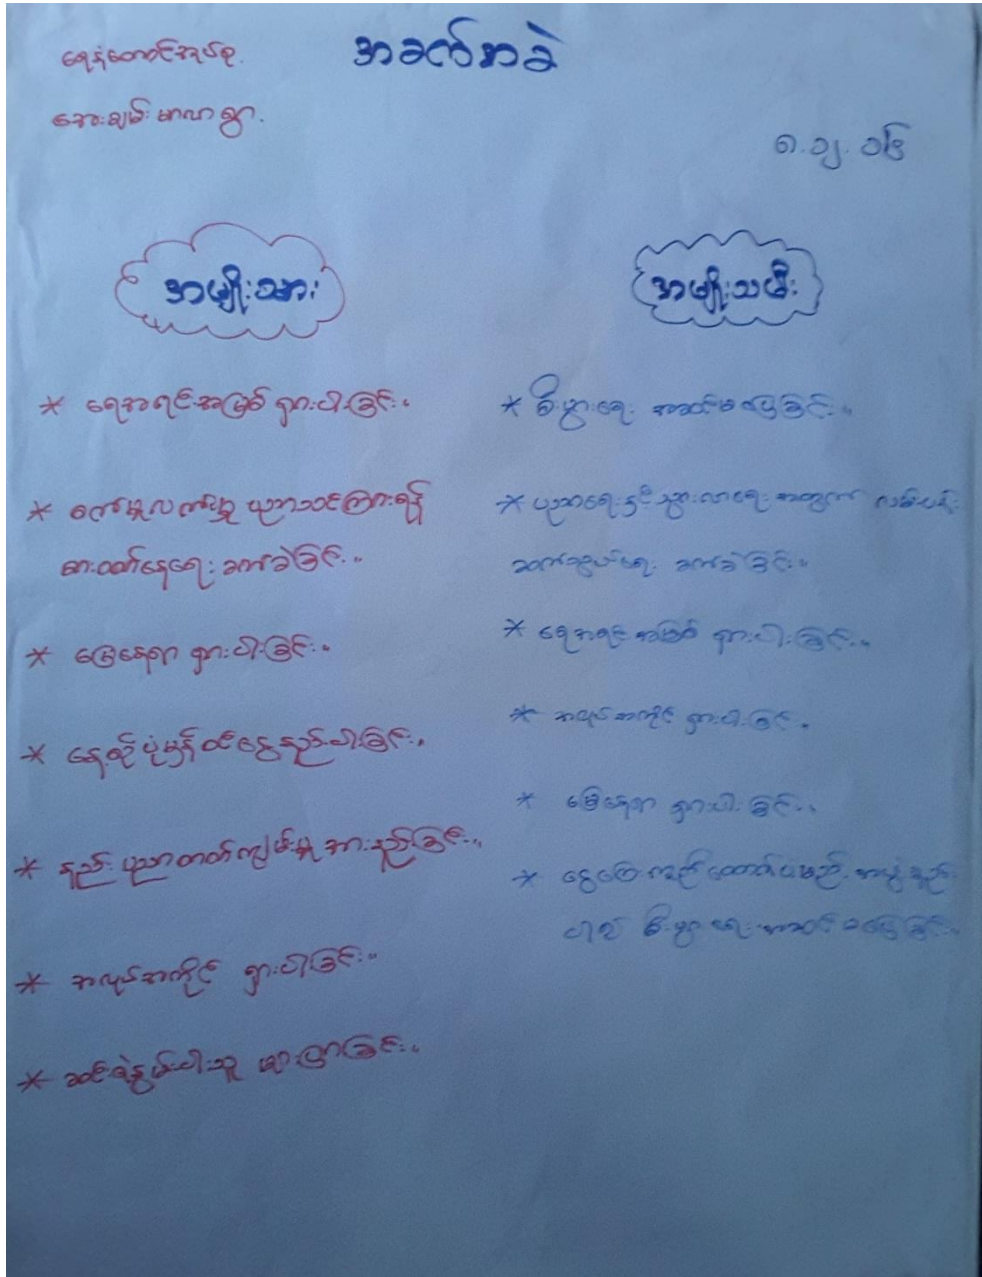 အခက်အခဲ
ရေနံတောင်အုပ်စု.
အေးချမ်းမာလာရွာ.
၈.၁၂.၁၆
အမျိုးသား
* ရေအရင်းအမြစ် ရှားပါးခြင်း။
* စက်မှုလက်မှု ပညာသင်ကြားရန်
စားဝတ်နေရေး ခက်ခဲခြင်း။
* မြေနေရာ ရှားပါးခြင်း။
* နေ့စဉ်ပုံမှန်ဝင်ငွေနည်းပါးခြင်း။
* နည်းပညာတတ်ကျွမ်းမှု အားနည်းခြင်း။
* အလုပ်အကိုင် ရှားပါးခြင်း။
* ဆင်းရဲနွမ်းပါးသူ များပြားခြင်း။
အမျိုးသမီး
* စီးပွားရေး အဆင်မပြေခြင်း။
* ပညာရေးနှင့်သွားလာရေးအတွက် လမ်းပန်း
ဆက်သွယ်ရေး ခက်ခဲခြင်း။
* ရေအရင်းအမြစ် ရှားပါးခြင်း။
* အလုပ်အကိုင် ရှားပါးခြင်း။
* မြေနေရာ ရှားပါးခြင်း။
* ငွေကြေးကူညီထောက်ပံ့မည့်အဖွဲ့နည်း
ပါး၍ စီးပွားရေးအဆင်မပြေခြင်း။